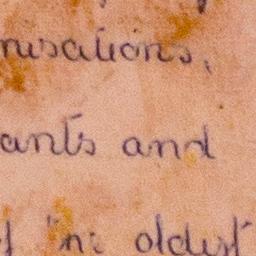 nisations,
ants and
oldest